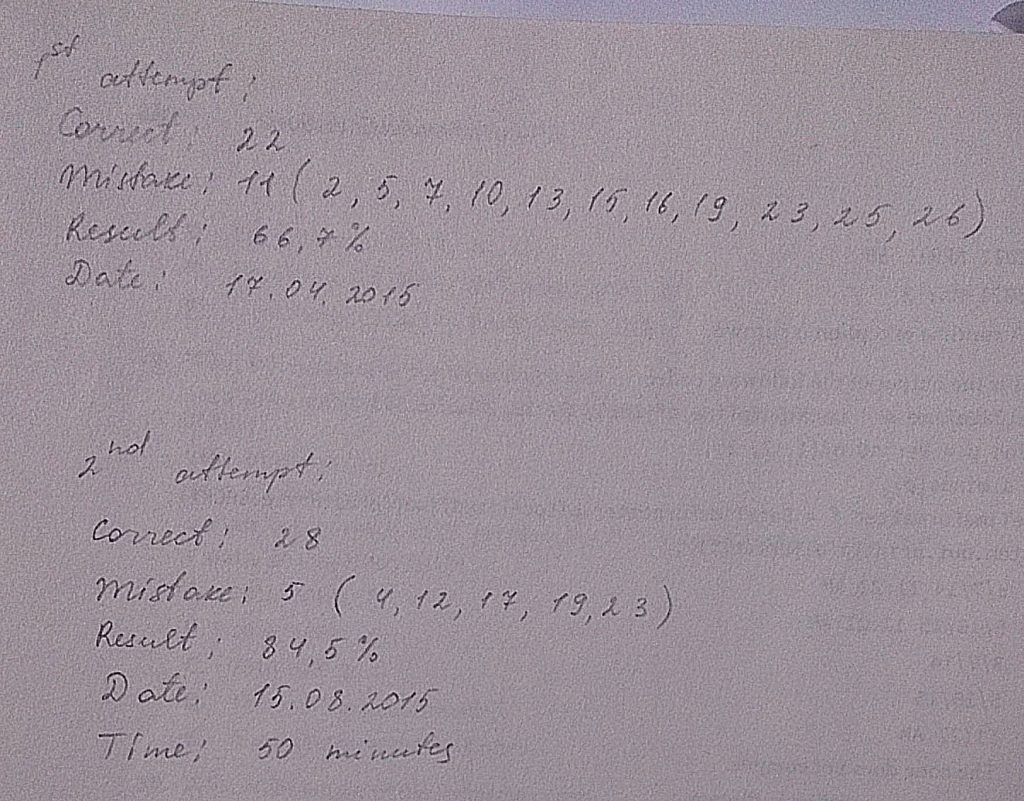 1st attempt:
Correct: 22
Mistake: 11 (2, 5, 7, 10, 13, 15, 16, 19, 23, 25, 26)
Result: 66,7%
Date: 17.04.2015
2nd attempt:
Correct: 28
Mistake: 5 (4, 12, 17, 19, 23)
Result: 84,5%
Date: 15.08.2015
Time: 50 minutes